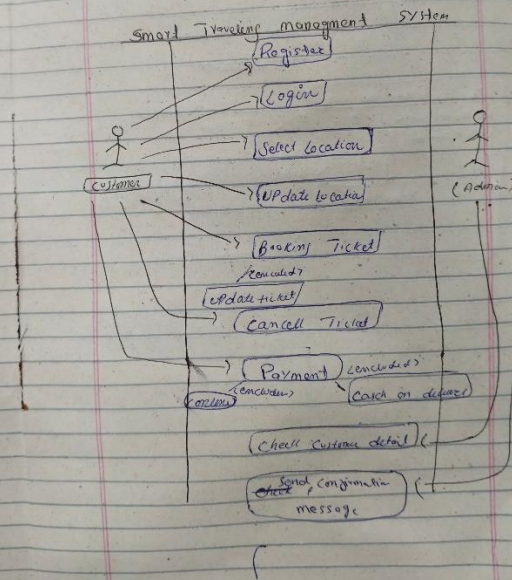 Smart Traveling managment System
Register
Login
Select Location
Customer
(Admin)
UPdate Location
Booking Ticket
update ticket
Cancell Ticket
Payment
Cash on
Check Customer detail
Send Confirmation
message